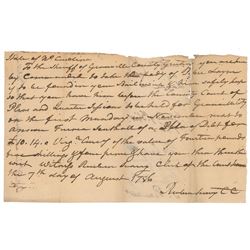 State of No Carolina
To the Sheriff of Granville County Greeting you are hereby
Commanded to take the body of
to be found in your Bailiwick & him safely keep
so that you have him before the County Court of
Pleas and Quarter Sessions to be held for Granville
on the first Monday in November next to
answer a Plea of Debt for
£10.14.0 of the value of fourteen pounds
five shillings & four pence & have you then there this
writ. Witness Reuben Searcy Clerk of the Court
the 7th day of August 1786
Reuben Searcy CC